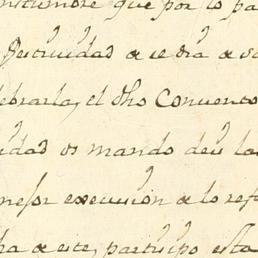 que por lo pa
Festividad de se dia de se
lebrarla, el dho Convento
idad os mando deis la
mejor execucion de lo refe
ha de este, participo esta